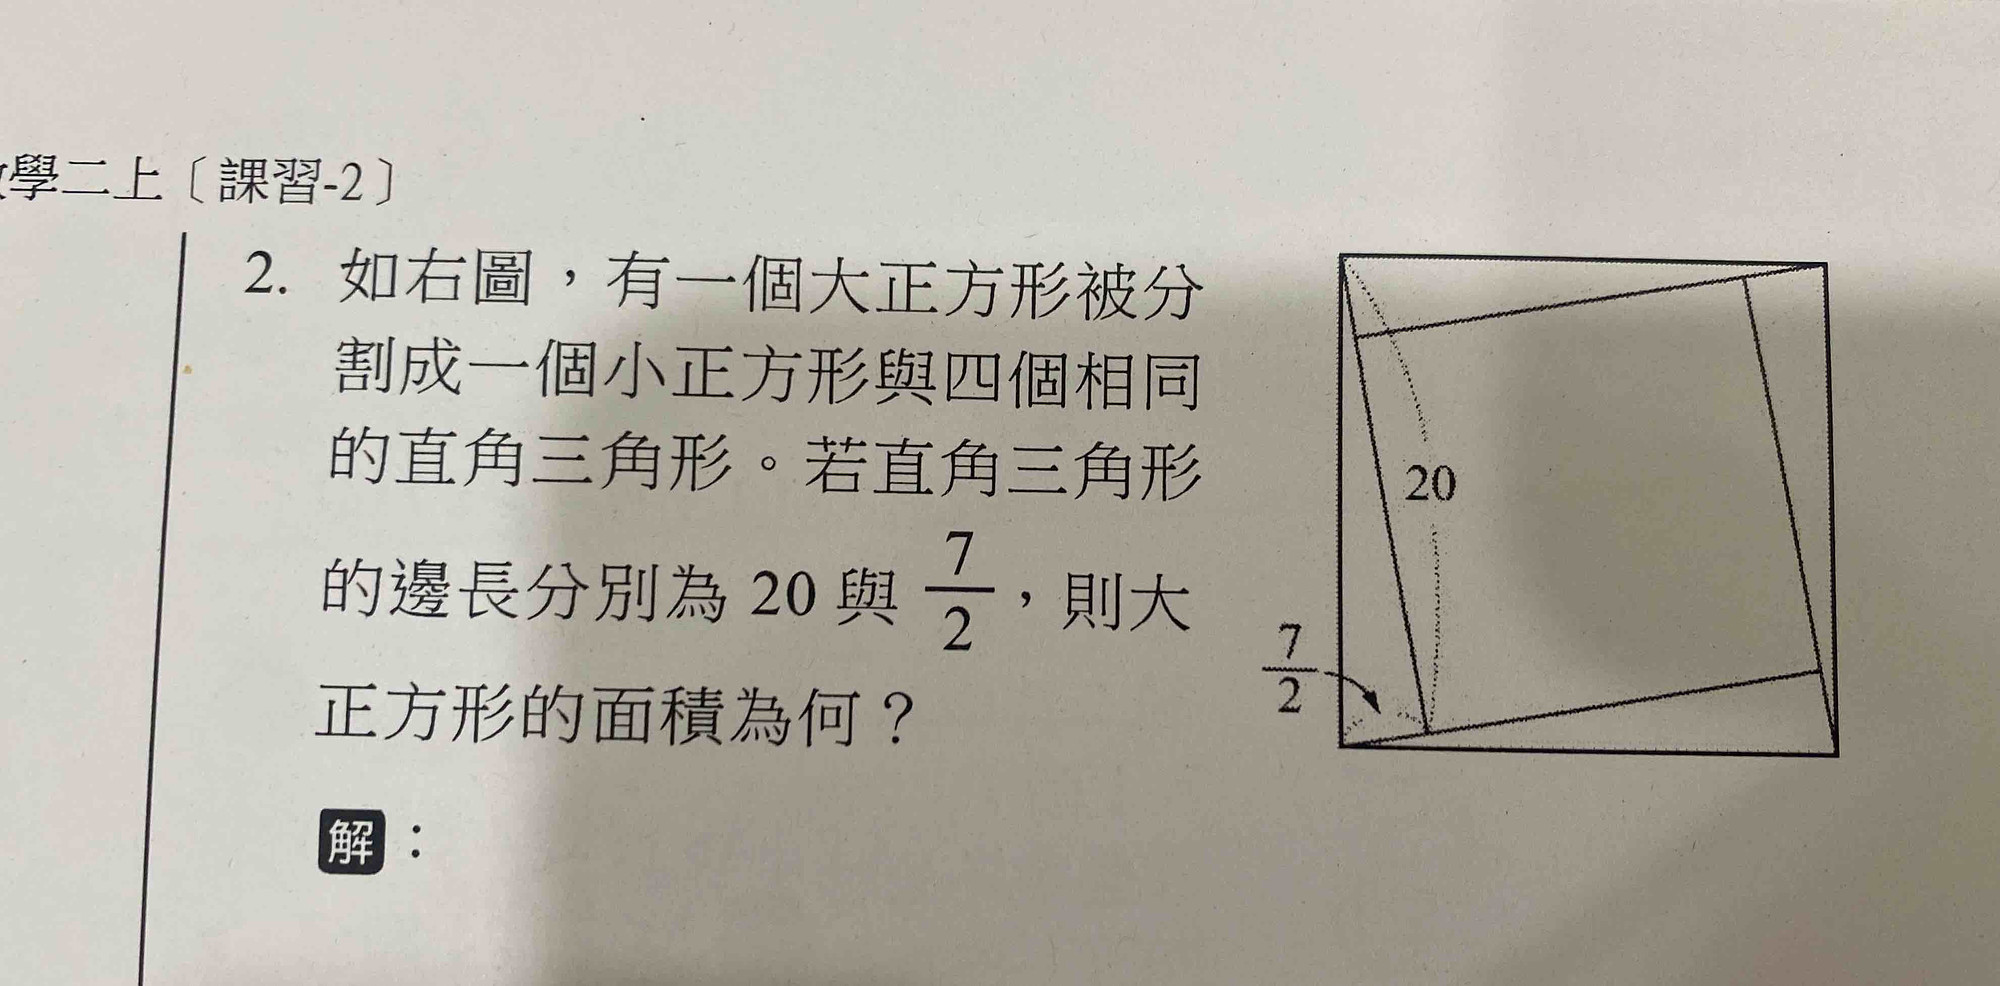 學二上〔課習-2〕
2. 如右圖，有一個大正方形被分
割成一個小正方形與四個相同
的直角三角形。若直角三角形
的邊長分別為 20 與 7/2，則大
正方形的面積為何？
解：
20
7/2